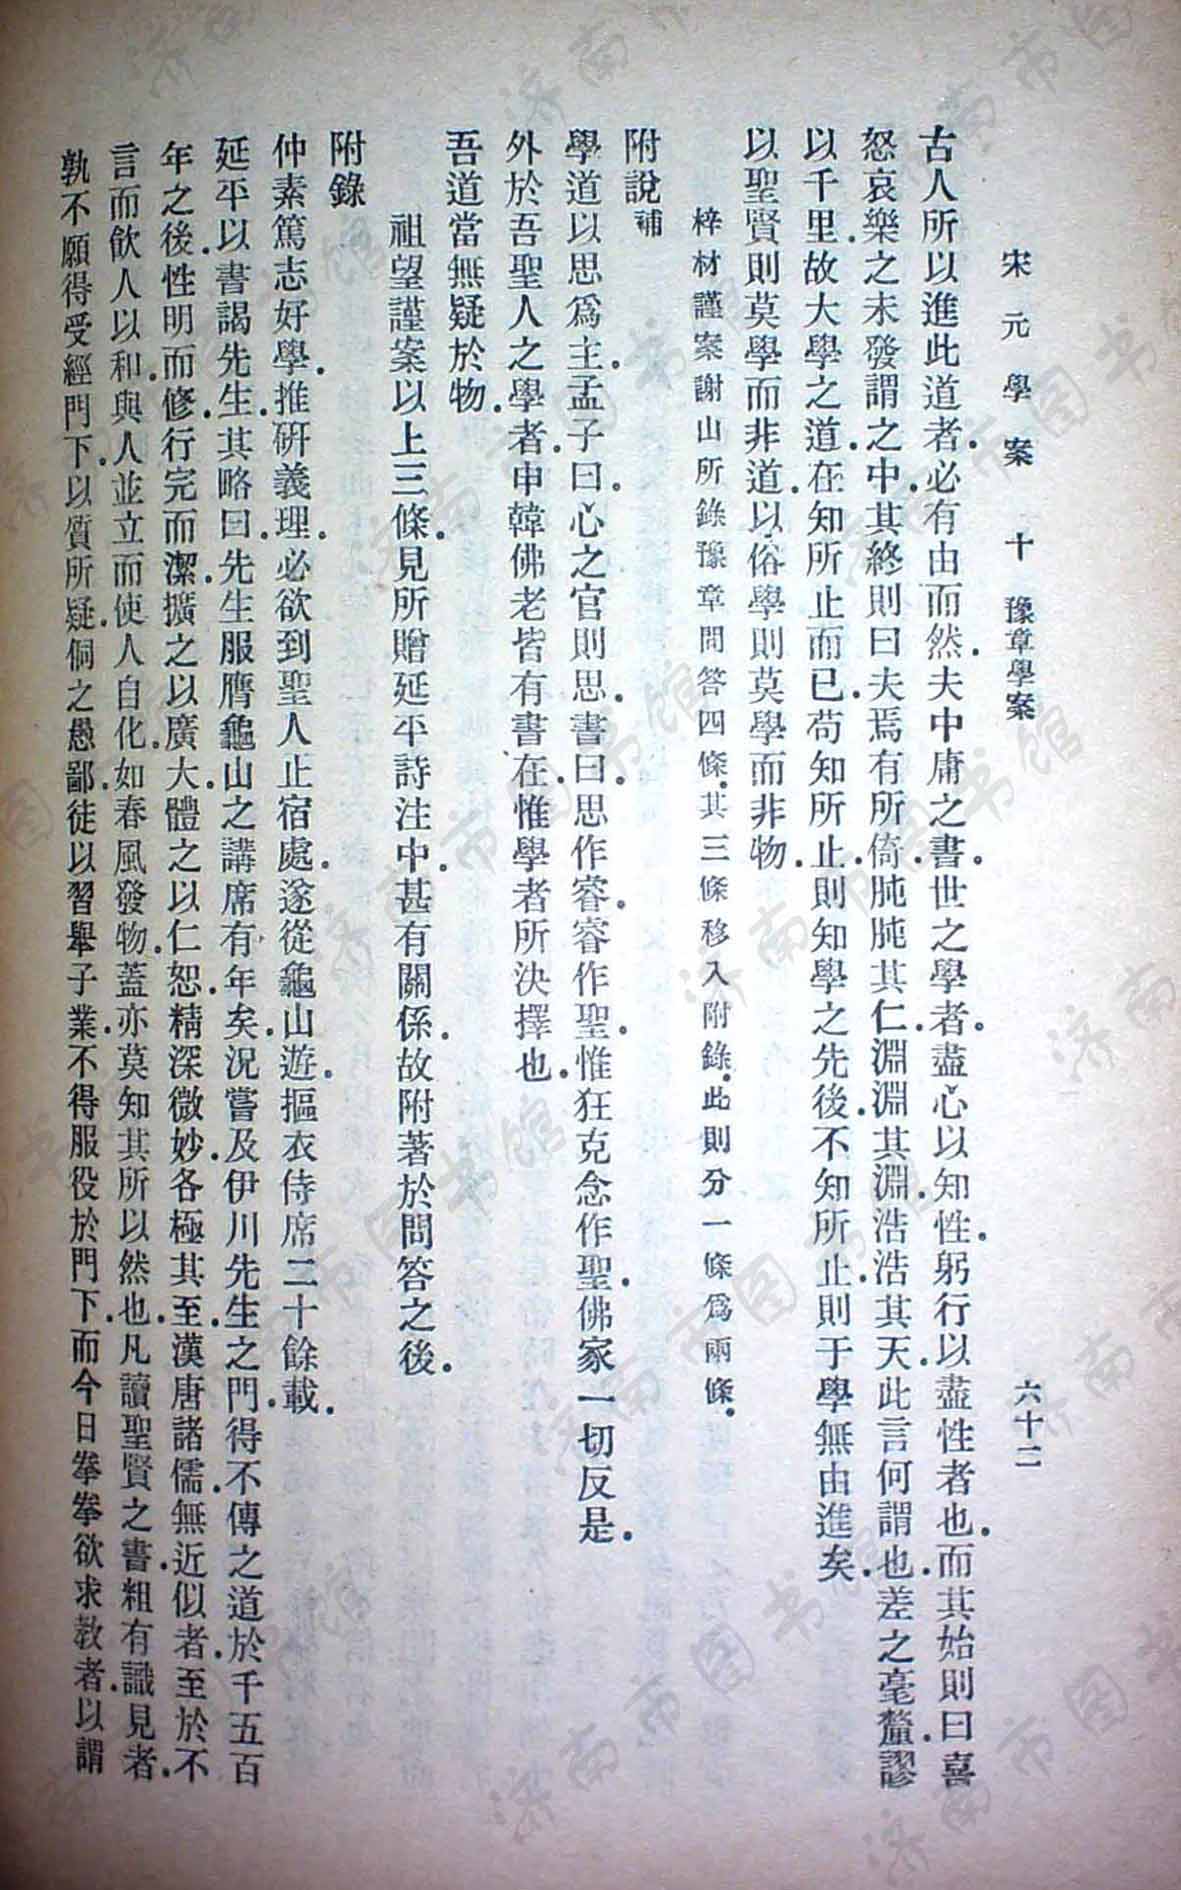 宋元學案 十 豫章學案 六十二
古人所以進此道者.必有由而然.夫中庸之書.世之學者.盡心以知性.躬行以盡性者也.而其始則曰.喜
怒哀樂之未發謂之中.其終則曰.夫焉有所倚.肫肫其仁.淵淵其淵.浩浩其天.此言何謂也.差之毫釐.謬
以千里.故大學之道.在知所止而已.苟知所止.則知學之先後.不知所止.則于學無由進矣.
以聖賢則莫學而非道.以俗學則莫學而非物.
梓材謹案謝山所錄豫章問答四條.其三條移入附錄.此則分一條爲兩條.
附說補
學道以思爲主.孟子曰.心之官則思.書曰.思作睿.睿作聖.惟狂克念作聖.佛家一切反是.
外於吾聖人之學者.申韓佛老皆有書在.惟學者所決擇也.
吾道當無疑於物.
祖望謹案以上三條.見所贈延平詩注中.甚有關係.故附著於問答之後.
附錄
仲素篤志好學.推研義理.必欲到聖人止宿處.遂從龜山遊.摳衣侍席二十餘載.
延平以書謁先生.其略曰.先生服膺龜山之講席有年矣.況嘗及伊川先生之門.得不傳之道於千五百
年之後.性明而修.行完而潔.擴之以廣大.體之以仁恕.精深微妙.各極其至.漢唐諸儒.無近似者.至於不
言而飲人以和.與人並立而使人自化.如春風發物.蓋亦莫知其所以然也.凡讀聖賢之書.粗有識見者.
孰不願得受經門下.以質所疑.侗之愚鄙.徒以習舉子業.不得服役於門下.而今日拳拳欲求教者.以謂